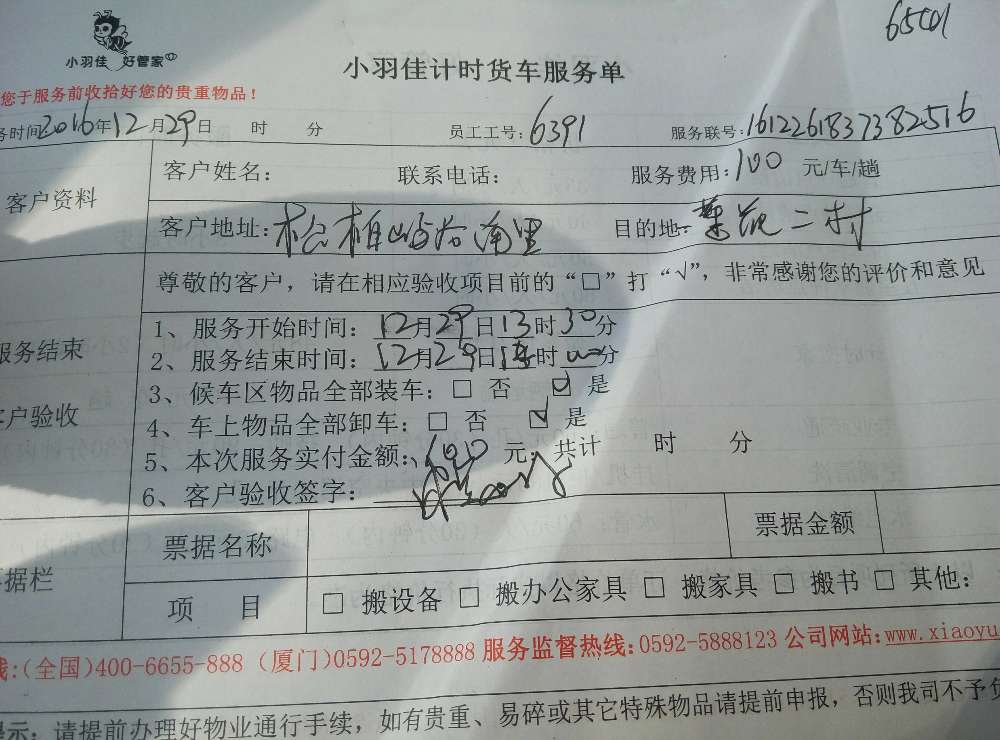 65501
小羽佳 好管家
小羽佳计时货车服务单
您于服务前收拾好您的贵重物品！
务时间2016年12月29日 时 分 员工工号：6391 服务联号：1612261837382516
客户资料
客户姓名： 联系电话： 服务费用：100 元/车/趟
客户地址：松柏屿后南里 目的地：莲花二村
尊敬的客户，请在相应验收项目前的“□”打“√”，非常感谢您的评价和意见
服务结束
客户验收
1、服务开始时间：12月29日13时30分
2、服务结束时间：12月29日 时 分
3、候车区物品全部装车：□ 否 ☑ 是
4、车上物品全部卸车：□ 否 ☑ 是
5、本次服务实付金额：100元；共计 时 分
6、客户验收签字：
票据栏
票据名称 票据金额
项 目 □ 搬设备 □ 搬办公家具 □ 搬家具 □ 搬书 □ 其他：
线：(全国)400-6655-888 (厦门)0592-5178888 服务监督热线：0592-5888123 公司网站：www.xiaoyu
提示：请提前办理好物业通行手续，如有贵重、易碎或其它特殊物品请提前申报，否则我司不予负